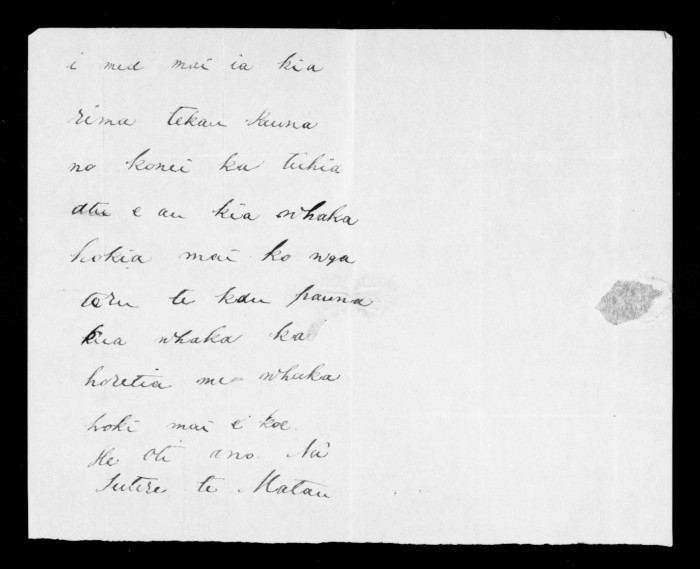 i mea mai ia kia
rima tekau pauna
no konei ka tuhia
atu e au kia whaka
hokia mai ko nga
toru te kau pauna
kua whaka ka
horetia me whaka
hoki mai e koe.
He oti ano. Nā
te Matau